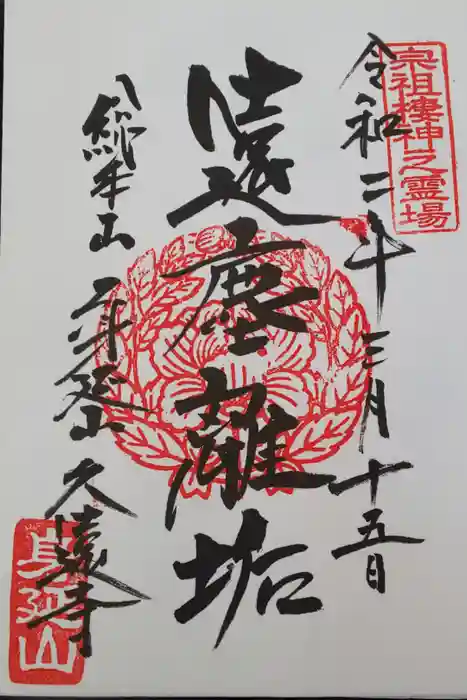 宗祖棲神之霊場
令和二年三月十五日
遠塵離垢
総本山 身延山 久遠寺
身延山